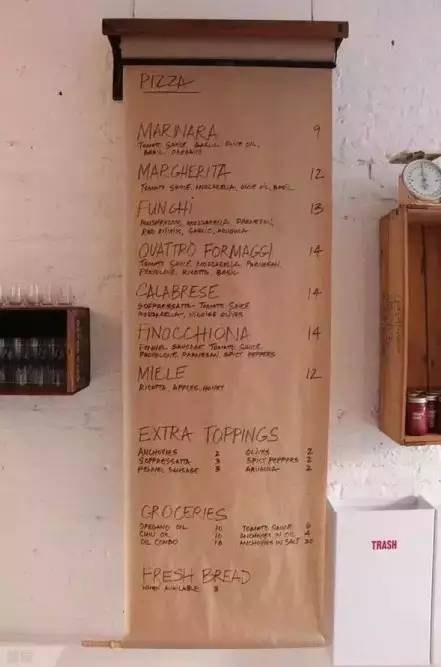 PIZZA
MARINARA 9
TOMATO SAUCE, GARLIC, OLIVE OIL,
BASIL, OREGANO
MARGHERITA 12
TOMATO SAUCE, MOZZARELLA, OLIVE OIL, BASIL
FUNGHI 13
MUSHROOMS, MOZZARELLA, PARMESAN,
RED ONIONS, GARLIC, ARUGULA
QUATTRO FORMAGGI 14
TOMATO SAUCE, MOZZARELLA, PARMESAN,
PROVOLONE, RICOTTA, BASIL
CALABRESE 14
SOPPRESSATA, TOMATO SAUCE
MOZZARELLA, OLIVES
FINOCCHIONA 14
FENNEL SAUSAGE, TOMATO SAUCE
PROVOLONE, PARMESAN, SPICY PEPPERS
MIELE 12
RICOTTA, APPLES, HONEY
EXTRA TOPPINGS
ANCHOVIES 2 OLIVES 2
SOPPRESSATA 3 SPICY PEPPERS 2
FENNEL SAUSAGE 3 ARUGULA 2
GROCERIES
OREGANO OIL 10 TOMATO SAUCE 6
CHILI OIL 10 ANCHOVIES IN OIL 4
OIL COMBO 18 ANCHOVIES IN SALT
FRESH BREAD
WHEN AVAILABLE
TRASH